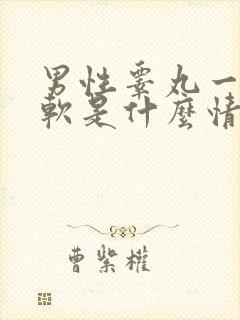 男性睾丸一
軟是什麼情
曹紫權